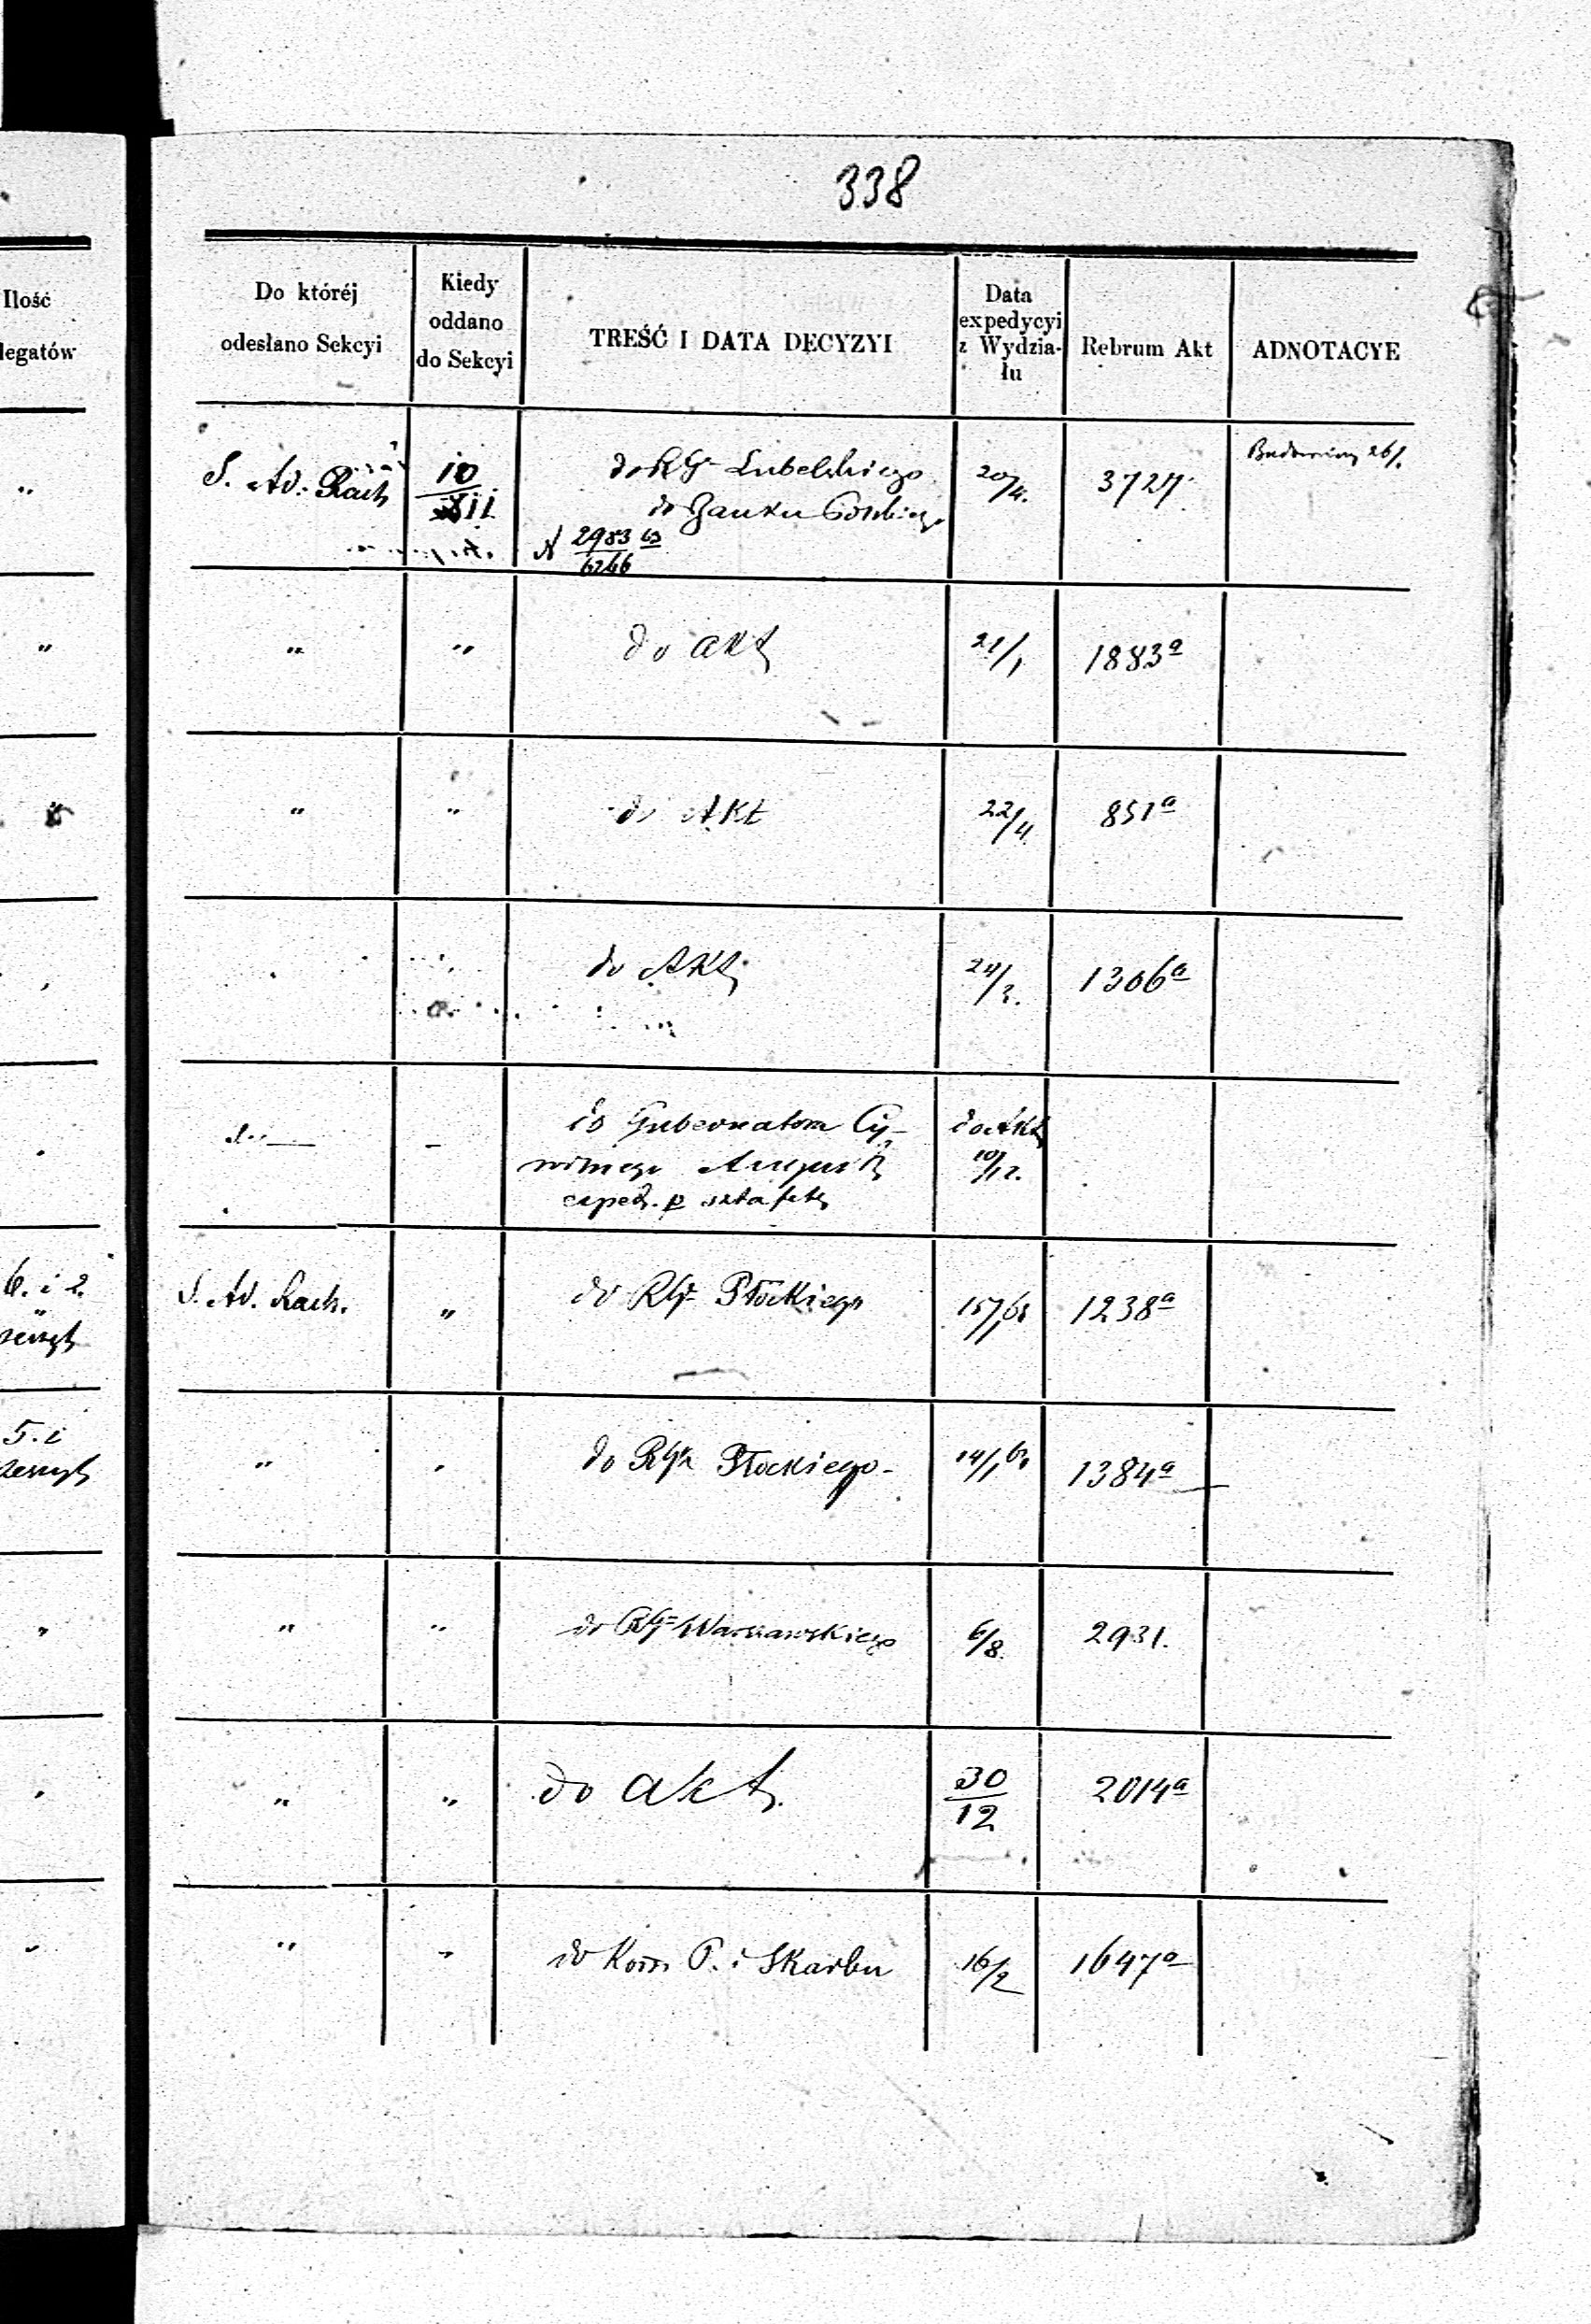 338
Ilość
legatów
Do któréj
odesłano Sekcyi
Kiedy
oddano
do Sekcyi
TREŚĆ I DATA DECYZYI
Data
expedycyi
z Wydzia-
łu
Rebrum Akt
ADNOTACYE
"
S. Ad: Rach
10
XII
do RGu Lubelskiego
do Banku Polskiego
N 2983
6246
20/4.
3727.
26/1.
" " " do akt 21/1 1883a
" " do Akt 22/4 851a
do Akt 24/3. 1306a
do Gubernatora Cy-
wilnego August
exped. p sztafetę
do Akt
10/12.
6. i 2.
zeszyt
S. Ad. Rach. " do RGu Płockiego 15/1 63 1238a
5. i
zeszyt
" " do RGu Płockiego- 14/1 63 1384a
" " " do RGu Warszawskiego 6/8. 2931.
" " " do akt. 30/12 2014a
" " " do Kom. P. i Skarbu 16/2 1647a